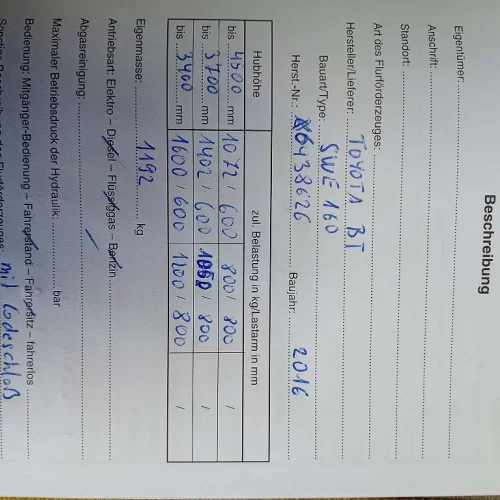 Beschreibung
Eigentümer:
Anschrift:
Standort:
Art des Flurförderzeuges:
Hersteller/Lieferer: TOYOTA BT
Bauart/Type: SWE 160
Herst.-Nr.: 6438626 Baujahr: 2016
Hubhöhe zul. Belastung in kg/Lastarm in mm
bis 4500 mm 1072 / 600 800 / 800 /
bis 3700 mm 1402 / 600 1050 / 800 /
bis 3400 mm 1600 / 600 1200 / 800 /
Eigenmasse: 1192 kg
Antriebsart: Elektro – Diesel – Flüssiggas – Benzin
Abgasreinigung: /
Maximaler Betriebsdruck der Hydraulik: bar
Bedienung: Mitgänger-Bedienung – Fahrerstand – Fahrersitz – fahrerlos
mit Codeschloß